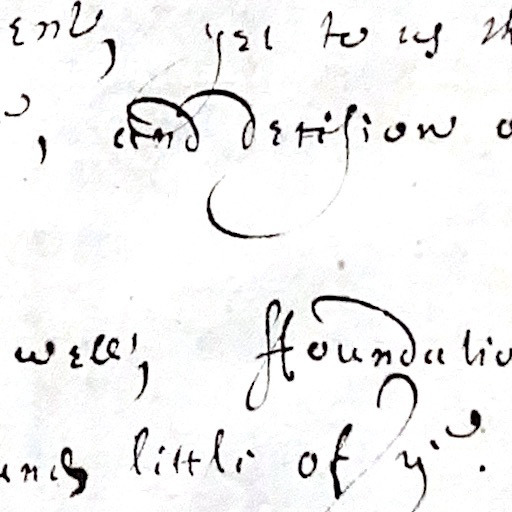 ent, yet to us th
, and deriſion o
well, ffoundatio
little of